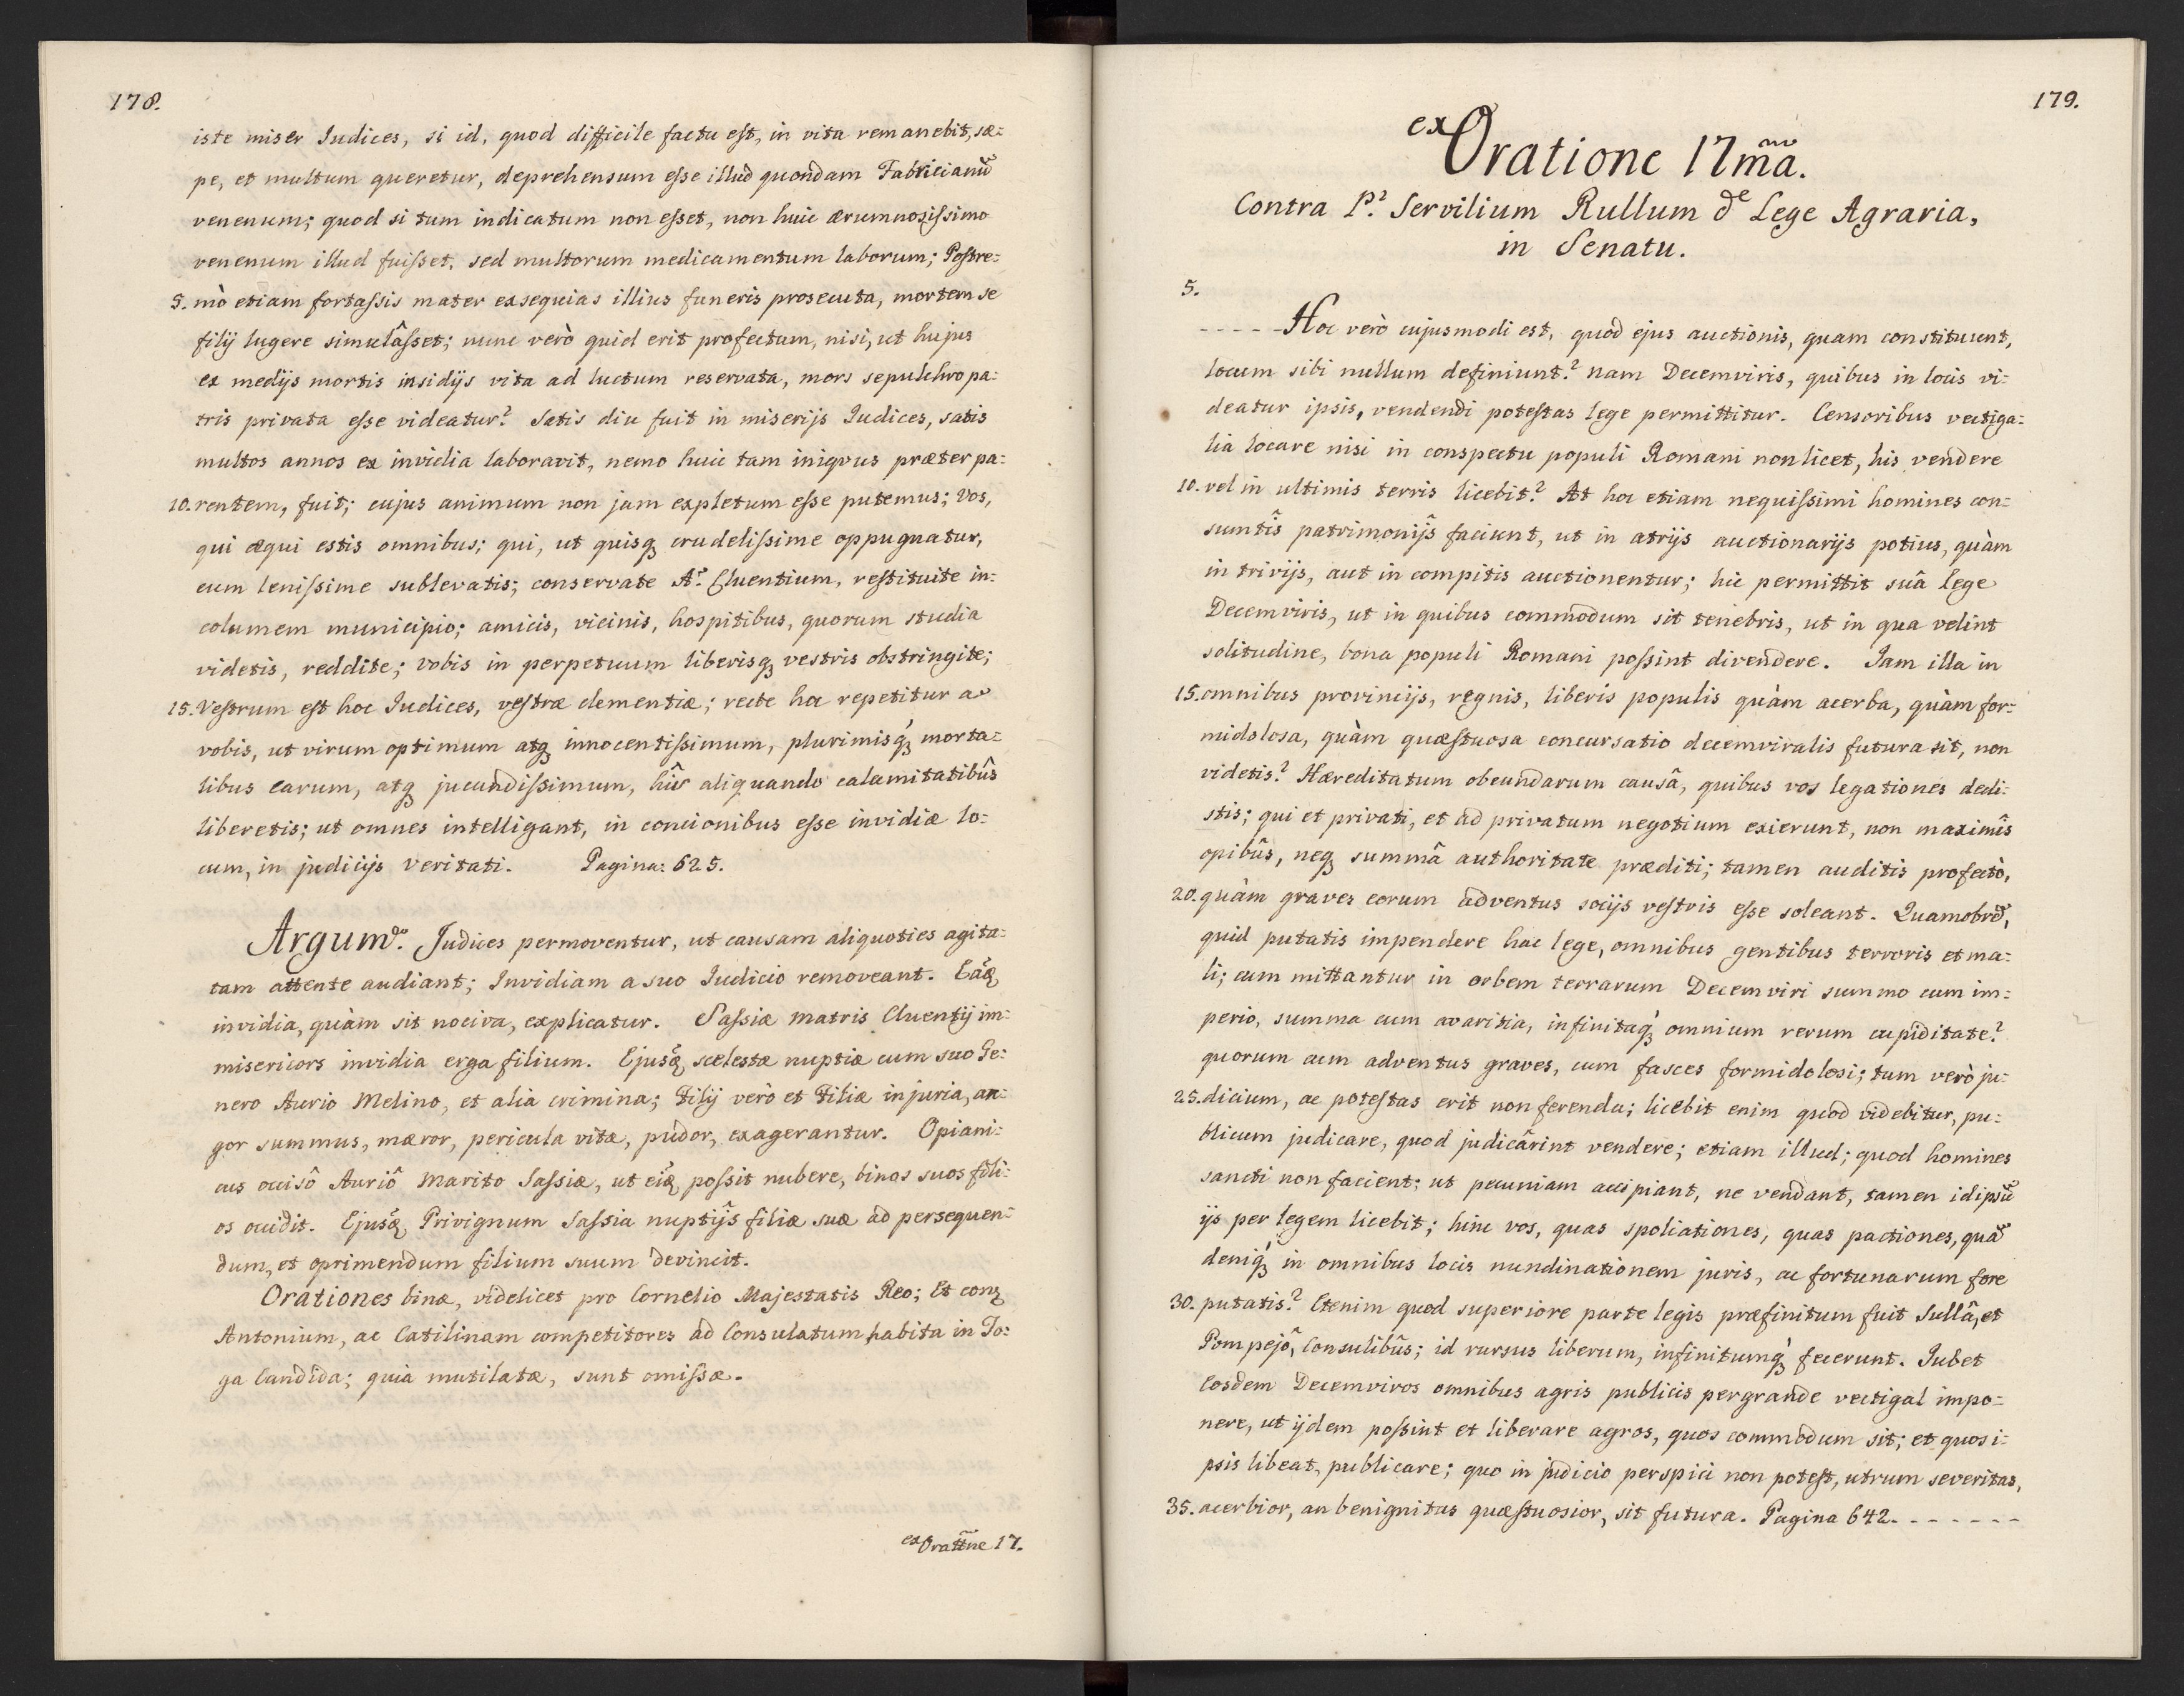 178.
iste miser Iudices, si id, quod difficile factu est, in vita remanebit, sæ=
pe, et multum queretur, deprehensum esse illud quondam Fabricianũ
venenum; quod si tum indicatum non esset, non huic ærumnosissimo
venenum illud fuisset, sed multorum medicamentum laborum; Postre=
5. mò etiam fortassis mater exsequias illius funeris prosecuta, mortem se
filij lugere simulâsset; nunc verò quid erit profectum, nisi, ut hujus
ex medijs mortis insidijs vita ad luctum reservata, mors sepulchro pa=
tris privata esse videatur? Satis diu fuit in miserijs Iudices, satis
multos annos ex invidia laboravit, nemo huic tam iniqvus præter pa=
10. rentem, fuit; cujus animum non jam expletum esse putemus; Vos,
qui æqui estis omnibus; qui, ut quisq; crudelissime oppugnatur,
eum lenissime sublevatis; conservate A. Cluentium, restituite in=
columem municipio; amicis, vicinis, hospitibus, quorum studia
videtis, reddite; vobis in perpetuum liberisq; vestris obstringite;
15. Vestrum est hoc Iudices, vestræ clementiæ; recte hoc repetitur a
vobis, ut virum optimum atq; innocentissimum, plurimisq́; morta=
libus carum, atq; jucundissimum, hîs aliquando calamitatibûs
liberetis; ut omnes intelligant, in concionibus esse invidiæ lo=
cum, in judicijs veritati. Pagina: 625.
Argum. Judices permoventur, ut causam aliquoties agita=
tam attente audiant; Invidiam a suo Iudicio removeant. Eáq;
invidia, quàm sit nociva, explicatur. Sassiæ matris Cluentij im=
misericors invidia erga filium. Ejusq́; scelestæ nuptiæ cum suo Ge=
nero Aurio Melino, et alia crimina; Filij verò et Filiæ injuria, an=
gor summus, mæror, pericula vitæ, pudor, exagerantur. Opiani=
cus occisô Auriô Marito Sassiæ, ut eiq́; possit nubere, binos suos fili=
os occidit. Ejusq́; Privignum Sassia nuptijs filiæ suæ ad persequen=
dum, et oprimendum filium suum devincit.
Orationes binæ, videlicet pro Cornelio Majestatis Reo; Et con
Antonium, ac Catilinam competitores ad Consulatum habita in To=
ga Candida; quia mutilatæ, sunt omissæ.
ex Orat̃t̃ne 17.
179.
ex Oratione 17mã.
Contra P. Servilium Rullum de Lege Agraria,
in Senatu.
5.
- - - - - Hoc verò cujusmodi est, quod ejus auctionis, quam constituunt,
locum sibi nullum definiunt? nam Decemviris, quibus in locis vi=
deatur ipsis, vendendi potestas lege permittitur. Censoribus vectiga=
lia locare nisi in conspectu populi Romani non licet, his vendere
10. vel in ultimis terris licebit? At hoc etiam nequissimi homines con=
sumtîs patrimonijs faciunt, ut in atrijs auctionarijs potius, quàm
in trivijs, aut in compitis auctionentur; hic permittit suâ lege
Decemviris, ut in quibus commodum sit tenebris, ut in qua velint
solitudine, bona populi Romani possint divendere. Iam illa in
15. omnibus provincijs, regnis, liberis populis quàm acerba, quàm for=
midolosa, quàm quæstuosa concursatio decemviralis futura sit, non
videtis? Hæreditatum obeundarum causâ, quibus vos legationes dedi=
stis; qui et privati, et ad privatum negotium exierunt, non maximîs
opibûs, neq; summâ authoritate præditi; tamen auditis profectò,
20. quàm graves eorum adventus socijs vestris esse soleant. Quamobrẽ,
quid putatis impendere hac lege, omnibus gentibus terroris et ma=
li; cum mittantur in orbem terrarum Decemviri summo cum im=
perio, summa cum avaritia, infinitaq́; omnium rerum cupiditate?
quorum cum adventus graves, cum fasces formidolosi; tum verò ju=
25. dicium, ac potestas erit non ferenda; licebit enim quod videbitur, pu=
blicum judicare, quod judicârint vendere; etiam illud; quod homines
sancti non facient; ut pecuniam accipiant, ne vendant, tamen idipsũ
ijs per legem licebit; hinc vos, quas spoliationes, quas pactiones, quã
deniq́; in omnibus locis nundinationem juris, ac fortunarum fore
30. putatis? Etenim quod superiore parte legis præfinitum fuit Sullâ, et
Pompejô, Consulibûs; id rursus liberum, infinitumq́; fecerunt. Iubet
Eosdem Decemviros omnibus agris publicis pergrande vectigal impo=
nere, ut ijdem possint et liberare agros, quos commodum sit; et quos i=
psis libeat, publicare; quo in judicio perspici non potest, utrum severitas,
35. acerbior, an benignitas quæstuosior, sit futura. Pagina 642. - - - - - - -